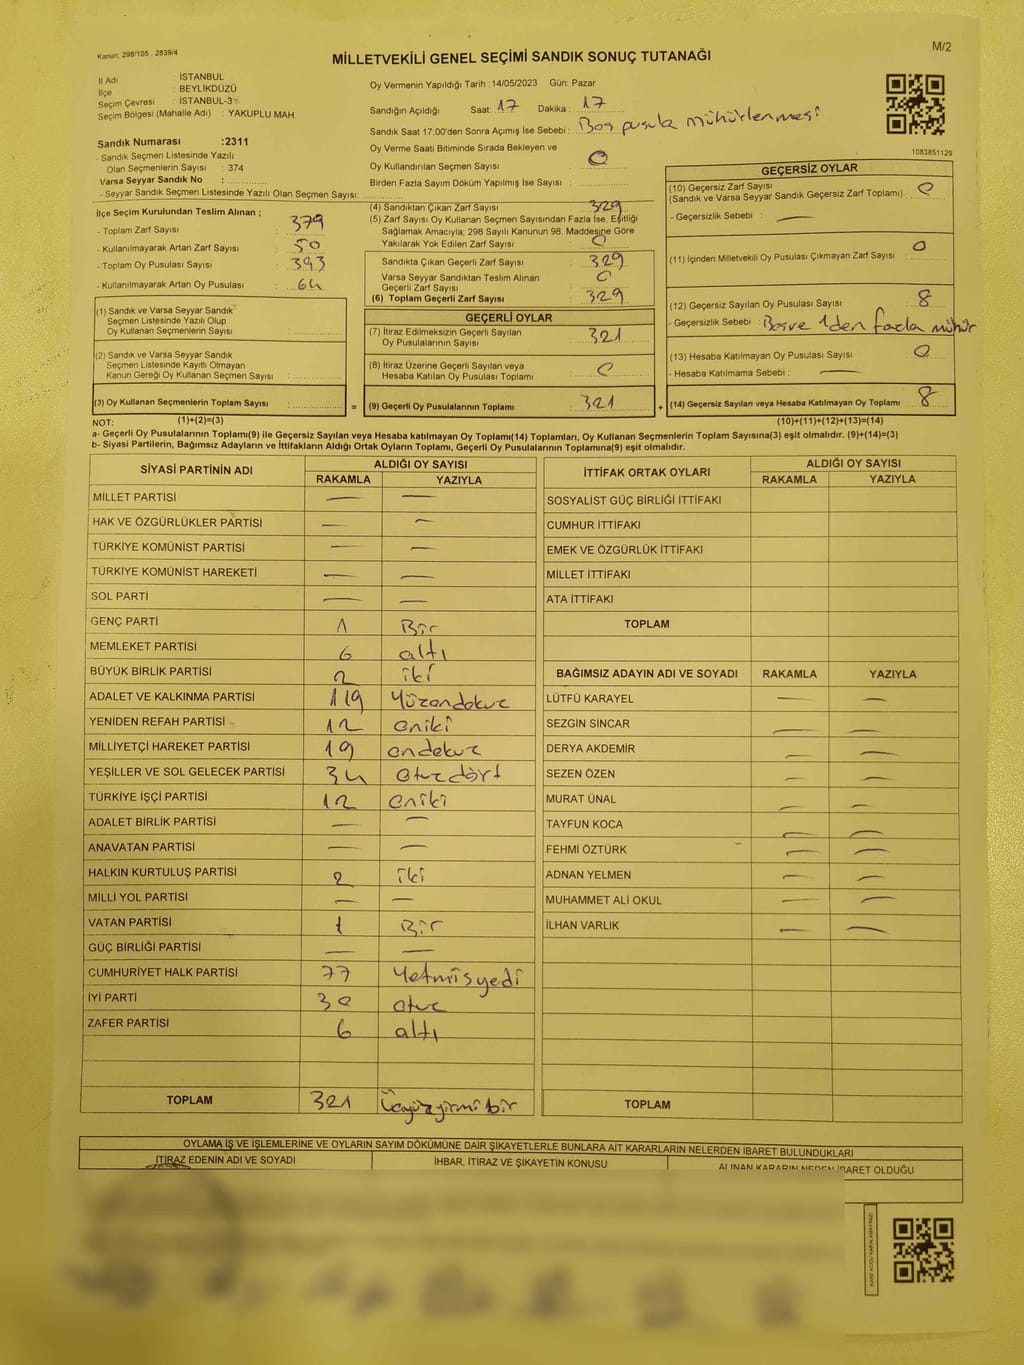 Kanun: 298/105 , 2839/4
MİLLETVEKİLİ GENEL SEÇİMİ SANDIK SONUÇ TUTANAĞI
M/2
İl Adı : İSTANBUL
İlçe : BEYLİKDÜZÜ
Seçim Çevresi : İSTANBUL-3
Seçim Bölgesi (Mahalle Adı) : YAKUPLU MAH.
Sandık Numarası :2311
- Sandık Seçmen Listesinde Yazılı
Olan Seçmenlerin Sayısı : 374
Varsa Seyyar Sandık No :
- Seyyar Sandık Seçmen Listesinde Yazılı Olan Seçmen Sayısı:
Oy Vermenin Yapıldığı Tarih :14/05/2023 Gün: Pazar
Sandığın Açıldığı Saat: 17 Dakika : 17
Sandık Saat 17:00'den Sonra Açımış İse Sebebi : Boş pusula mühürlenmesi
Oy Verme Saati Bitiminde Sırada Bekleyen ve
Oy Kullandırılan Seçmen Sayısı : 0
Birden Fazla Sayım Döküm Yapılmış İse Sayısı :
1083851129
İlçe Seçim Kurulundan Teslim Alınan ;
- Toplam Zarf Sayısı : 379
- Kullanılmayarak Artan Zarf Sayısı : 50
- Toplam Oy Pusulası Sayısı : 393
- Kullanılmayarak Artan Oy Pusulası : 64
(1) Sandık ve Varsa Seyyar Sandık
Seçmen Listesinde Yazılı Olup
Oy Kullanan Seçmenlerin Sayısı :
(2) Sandık ve Varsa Seyyar Sandık
Seçmen Listesinde Kayıtlı Olmayan
Kanun Gereği Oy Kullanan Seçmen Sayısı :
(3) Oy Kullanan Seçmenlerin Toplam Sayısı :
(4) Sandıktan Çıkan Zarf Sayısı : 329
(5) Zarf Sayısı Oy Kullanan Seçmen Sayısından Fazla İse, Eşitliği
Sağlamak Amacıyla; 298 Sayılı Kanunun 98. Maddesine Göre
Yakılarak Yok Edilen Zarf Sayısı : 0
Sandıkta Çıkan Geçerli Zarf Sayısı : 329
Varsa Seyyar Sandıktan Teslim Alınan
Geçerli Zarf Sayısı : 0
(6) Toplam Geçerli Zarf Sayısı : 329
GEÇERLİ OYLAR
(7) İtiraz Edilmeksizin Geçerli Sayılan
Oy Pusulalarının Sayısı : 321
(8) İtiraz Üzerine Geçerli Sayılan veya
Hesaba Katılan Oy Pusulası Toplamı : 0
= (9) Geçerli Oy Pusulalarının Toplamı : 321
GEÇERSİZ OYLAR
(10) Geçersiz Zarf Sayısı
(Sandık ve Varsa Seyyar Sandık Geçersiz Zarf Toplamı) : 0
- Geçersizlik Sebebi : —
(11) İçinden Milletvekili Oy Pusulası Çıkmayan Zarf Sayısı : 0
(12) Geçersiz Sayılan Oy Pusulası Sayısı : 8
- Geçersizlik Sebebi : Boş ve 1den fazla mühür
(13) Hesaba Katılmayan Oy Pusulası Sayısı : 0
- Hesaba Katılmama Sebebi : —
+ (14) Geçersiz Sayılan veya Hesaba Katılmayan Oy Toplamı : 8
NOT: (1)+(2)=(3) (10)+(11)+(12)+(13)=(14)
a- Geçerli Oy Pusulalarının Toplamı(9) ile Geçersiz Sayılan veya Hesaba katılmayan Oy Toplamı(14) Toplamları, Oy Kullanan Seçmenlerin Toplam Sayısına(3) eşit olmalıdır. (9)+(14)=(3)
b- Siyasi Partilerin, Bağımsız Adayların ve İttifakların Aldığı Ortak Oyların Toplamı, Geçerli Oy Pusulalarının Toplamına(9) eşit olmalıdır.
SİYASİ PARTİNİN ADI ALDIĞI OY SAYISI
RAKAMLA YAZIYLA
MİLLET PARTİSİ — —
HAK VE ÖZGÜRLÜKLER PARTİSİ — —
TÜRKİYE KOMÜNİST PARTİSİ — —
TÜRKİYE KOMÜNİST HAREKETİ — —
SOL PARTİ — —
GENÇ PARTİ 1 Bir
MEMLEKET PARTİSİ 6 altı
BÜYÜK BİRLİK PARTİSİ 2 iki
ADALET VE KALKINMA PARTİSİ 119 Yüzondokuz
YENİDEN REFAH PARTİSİ 12 oniki
MİLLİYETÇİ HAREKET PARTİSİ 19 ondokuz
YEŞİLLER VE SOL GELECEK PARTİSİ 34 otuzdört
TÜRKİYE İŞÇİ PARTİSİ 12 oniki
ADALET BİRLİK PARTİSİ — —
ANAVATAN PARTİSİ — —
HALKIN KURTULUŞ PARTİSİ 2 iki
MİLLİ YOL PARTİSİ — —
VATAN PARTİSİ 1 Bir
GÜÇ BİRLİĞİ PARTİSİ — —
CUMHURİYET HALK PARTİSİ 77 Yetmişyedi
İYİ PARTİ 30 otuz
ZAFER PARTİSİ 6 altı
TOPLAM 321 Üçyüzyirmibir
İTTİFAK ORTAK OYLARI ALDIĞI OY SAYISI
RAKAMLA YAZIYLA
SOSYALİST GÜÇ BİRLİĞİ İTTİFAKI
CUMHUR İTTİFAKI
EMEK VE ÖZGÜRLÜK İTTİFAKI
MİLLET İTTİFAKI
ATA İTTİFAKI
TOPLAM
BAĞIMSIZ ADAYIN ADI VE SOYADI RAKAMLA YAZIYLA
LÜTFÜ KARAYEL — —
SEZGİN SİNCAR — —
DERYA AKDEMİR — —
SEZEN ÖZEN — —
MURAT ÜNAL — —
TAYFUN KOCA — —
FEHMİ ÖZTÜRK — —
ADNAN YELMEN — —
MUHAMMET ALİ OKUL — —
İLHAN VARLIK — —
TOPLAM
OYLAMA İŞ VE İŞLEMLERİNE VE OYLARIN SAYIM DÖKÜMÜNE DAİR ŞİKAYETLERLE BUNLARA AİT KARARLARIN NELERDEN İBARET BULUNDUKLARI
İTİRAZ EDENİN ADI VE SOYADI İHBAR, İTİRAZ VE ŞİKAYETİN KONUSU ALINAN KARARIN NEDEN İBARET OLDUĞU